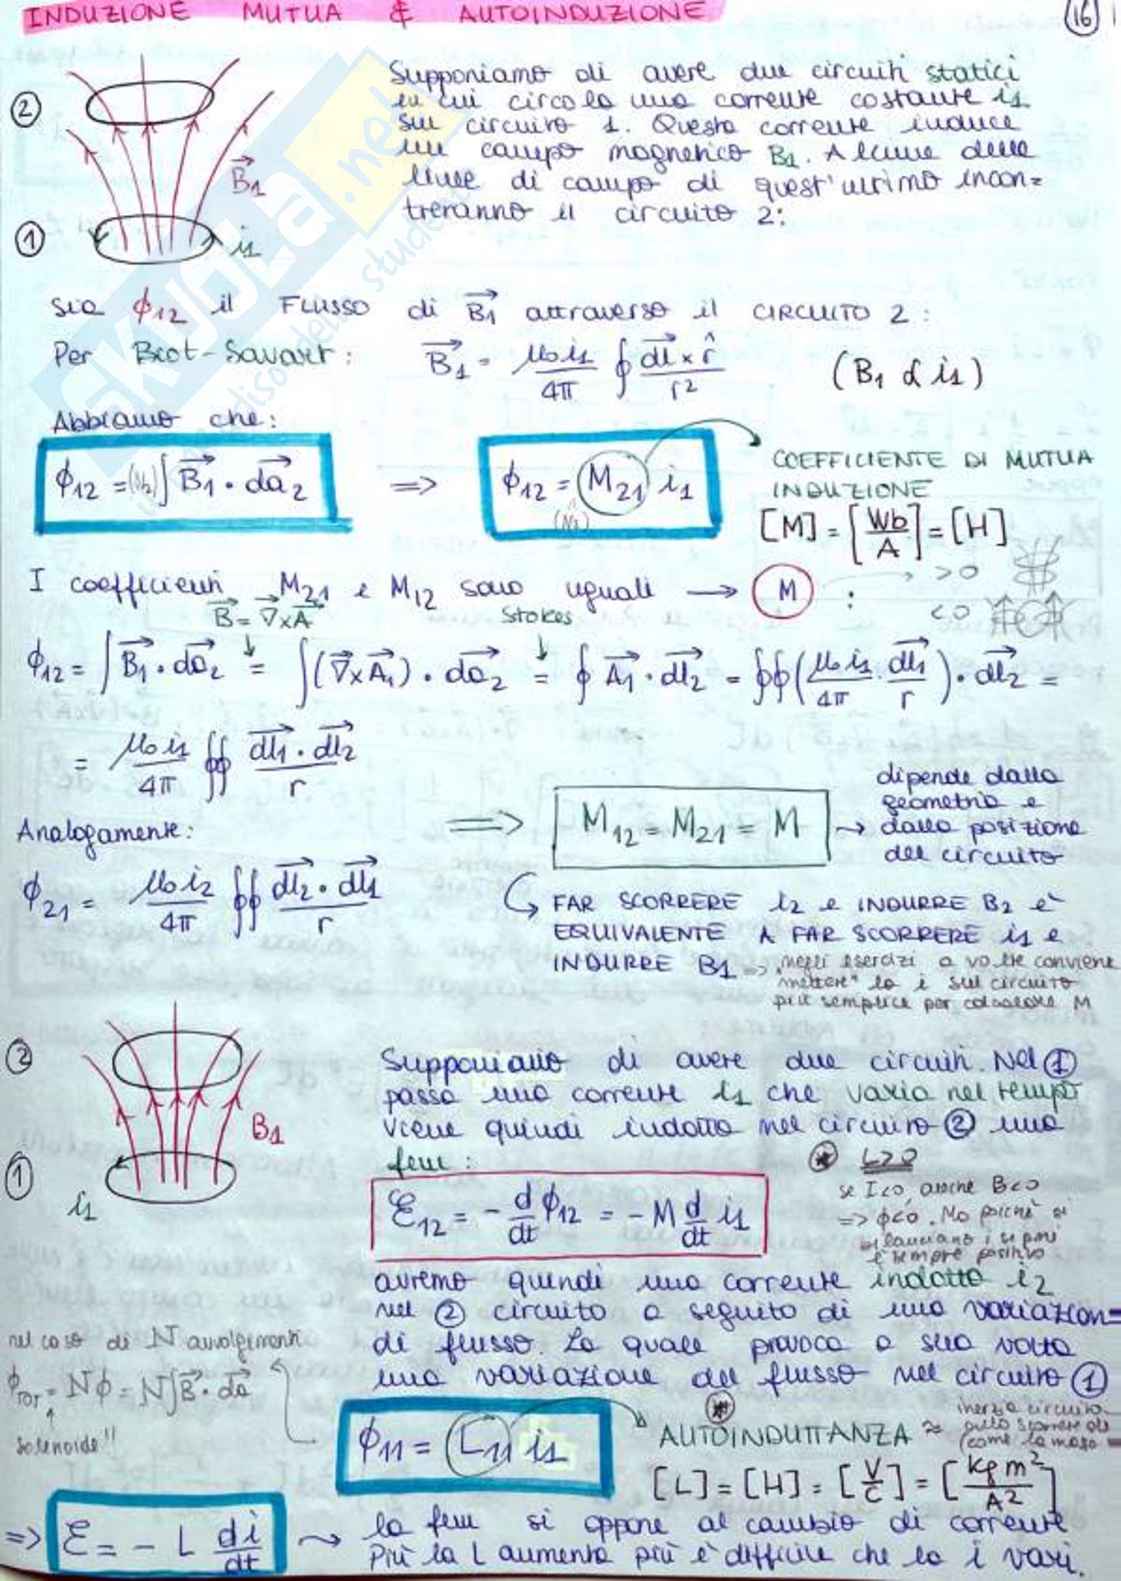 INDUZIONE MUTUA & AUTOINDUZIONE
16
Supponiamo di avere due circuiti statici
in cui circola una corrente costante i1
sul circuito 1. Questa corrente induce
un campo magnetico B1. Alcune delle
linee di campo di quest'ultimo incon=
treranno il circuito 2:
2
B1
1
i1
Sia ϕ12 il FLUSSO di B1 attraverso il CIRCUITO 2:
Per Biot-Savart: B1 = μ0i1/4π ∮ dl × r̂/r² (B1 α i1)
Abbiamo che:
ϕ12 = (N2)∫B1 · da2 => ϕ12 = M21 i1
(N2)
COEFFICIENTE DI MUTUA
INDUZIONE
[M] = [Wb/A] = [H]
I coefficienti M21 e M12 sono uguali → M : >0
<0
B = ∇×A Stokes
ϕ12 = ∫B1 · da2 = ∫(∇×A1) · da2 = ∮ A1 · dl2 = ∮∮(μ0i1/4π dl1/r) · dl2 =
= μ0i1/4π ∮∮ dl1 · dl2/r
Analogamente:
ϕ21 = μ0i2/4π ∮∮ dl2 · dl1/r
=> M12 = M21 = M → dipende dalla
geometria e
dalla posizione
del circuito
FAR SCORRERE i2 e INDURRE B2 è
EQUIVALENTE A FAR SCORRERE i1 e
INDURRE B1 => negli esercizi a volte conviene
"mettere" la i sul circuito
più semplice per calcolare M
2
B1
1
i1
Supponiamo di avere due circuiti. Nel 1
passa una corrente i1 che varia nel tempo
viene quindi indotta nel circuito 2 una
fem:
ε12 = - d/dt ϕ12 = - M d/dt i1
* L>0
se I<0 anche B<0
=> ϕ<0. Ma poiché si
bilanciano i segni
è sempre positivo
avremo quindi una corrente indotta i2
nel 2 circuito a seguito di una variazion=
di flusso. La quale provoca a sua volta
una variazione del flusso nel circuito 1
nel caso di N avvolgimenti
ϕTOT = Nϕ = N∫B · da
solenoide!!
ϕ11 = L11 i1
*
AUTOINDUTTANZA ≈ inerzia circuito
allo scorrere di
(come la massa
[L] = [H] = [V/C] = [kg m²/A²]
=> ε = - L di/dt
la fem si oppone al cambio di corrente
Più la L aumenta più è difficile che la i vari.
skuola.net